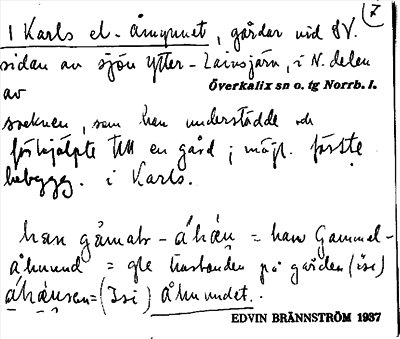 7
1 Karls el. Åmynnet, gårdar vid SV.
sidan av sjön Ytter-Lainsjärv, i N. delen
Överkalix sn o. tg Norrb. l.
av
socknen, som han understödde och
förhjälpte till en gård; möjl. första
bebygg. i Karls.
han gåmalr - áhán = han Gammel-
Åhmund = gle husbonden på gården (isi)
áhánsen = (Isi) Åhmundet.
EDVIN BRÄNNSTRÖM 1937